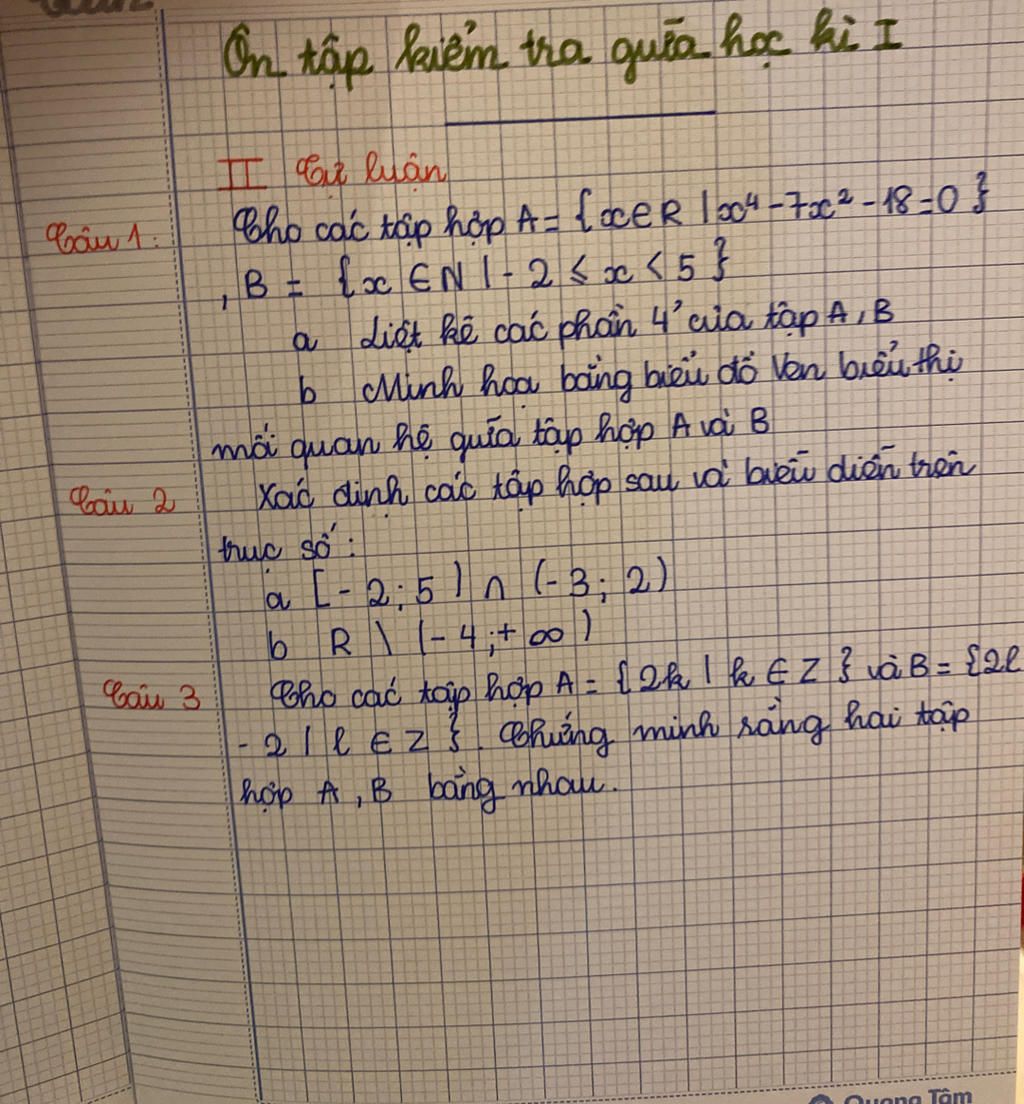 Ôn tập kiểm tra giữa học kì I
II Tự luận
Câu 1: Cho các tập hợp A = {x∈R | x⁴ - 7x² - 18 = 0 }
, B = {x ∈ N | - 2 ≤ x < 5 }
a Liệt kê các phần tử của tập A, B
b Minh họa bằng biểu đồ Ven biểu thị
mối quan hệ giữa tập hợp A và B
Câu 2 Xác định các tập hợp sau và biểu diễn trên
trục số:
a [- 2; 5 ) ∩ (- 3; 2)
b R \ (- 4; + ∞ )
Câu 3 Cho các tập hợp A = {2k | k ∈ Z } và B = {2l
- 2 | l ∈ Z }. Chứng minh rằng hai tập
hợp A, B bằng nhau.
Quang Tâm